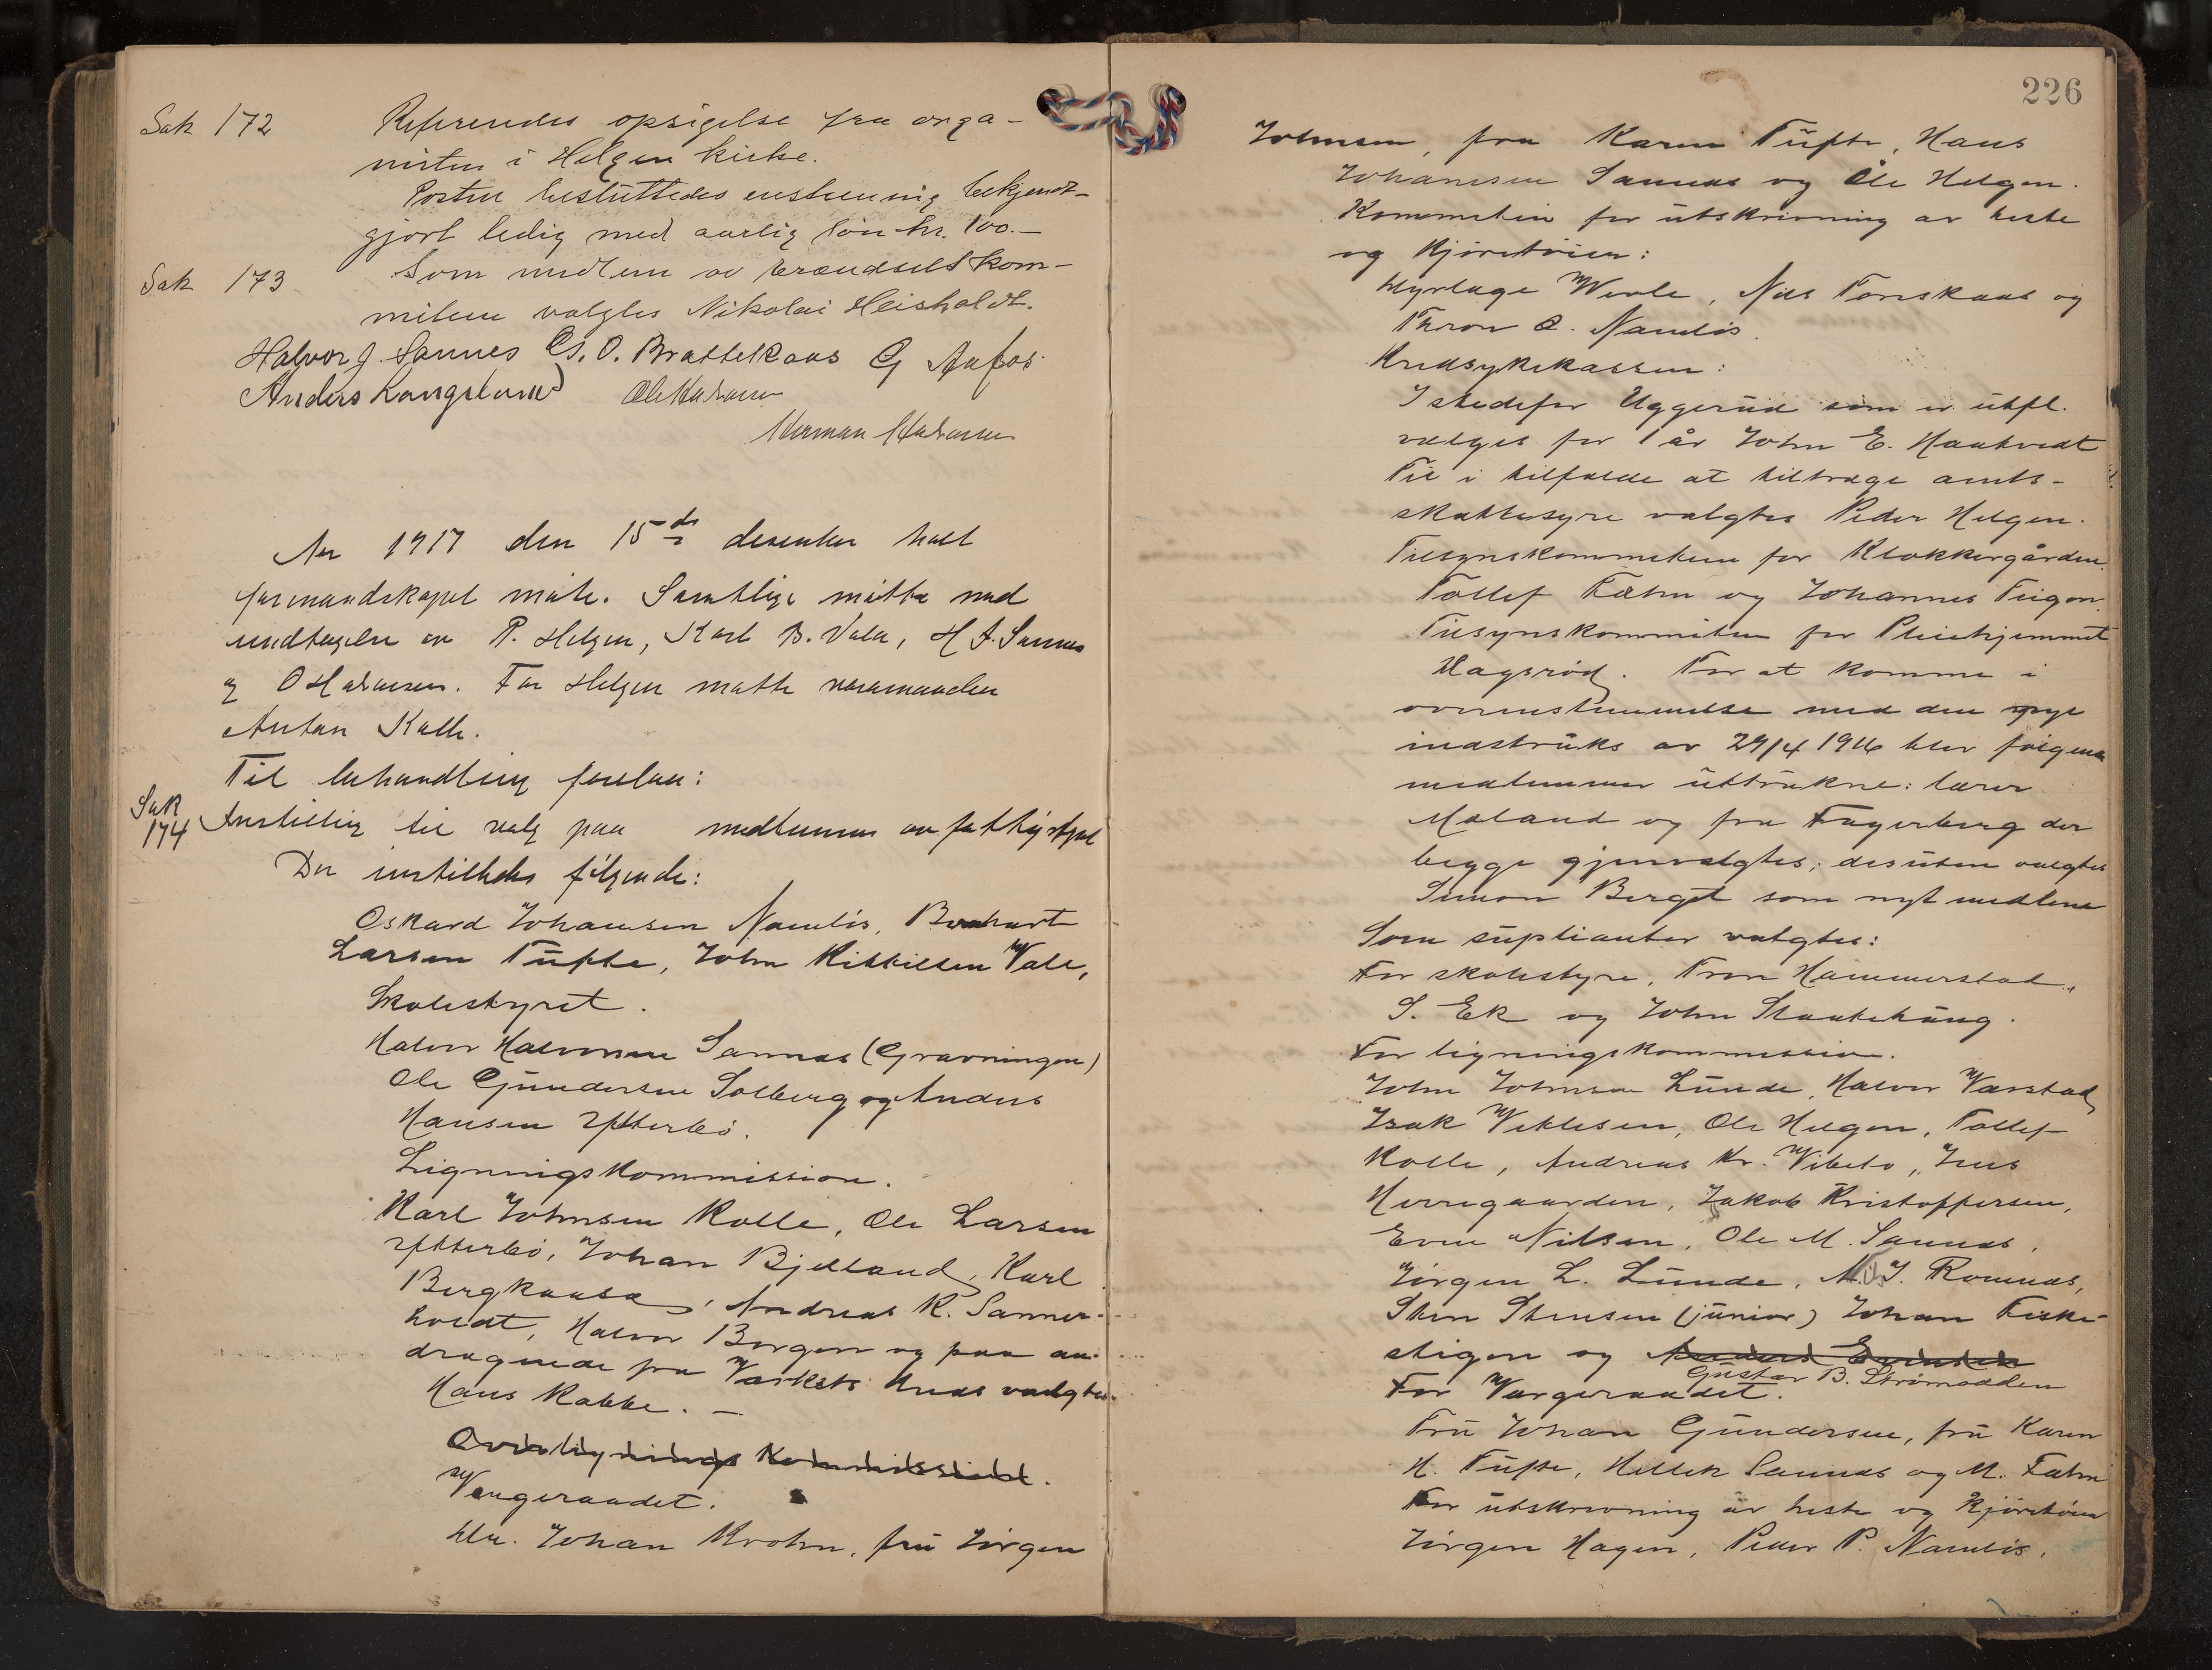 Sak 172 Refereredes opsigelse fra orga-
nisten i Helgen kirke.
Posten besluttedes enstemmig bekjendt-
gjort ledig med aarlig løn kr. 100.-
Sak 173 Som medlem av brændselskom-
miteen valgtes Nikolai Heisholdt.
Halvor J. Sannes G. O. Brattekaas G Aafos
Anders Kongslund Ole Halvorsen
Herman Halvorsen
Aar 1917 den 15de desember holt
formandskapet møte. Samtlige møtte med
undtagelse av P. Helgen, Karl B. Vala, H J. Sannes
og O Halvorsen. For Helgen møtte varamanden
Anton Kolle.
Til behandling forelaa:
Sak 174 Instilling til valg paa medlemmer av fattigstyret
Der instilledes følgende:
Oskard Johansen Namløs, Bernhart
Larsen Tufte, John Kittilsen Vale,
Skolestyret.
Halvor Halvorsen Sannes (Gravningen)
Ole Gundersen Solberg og Anders
Hansen Ytterbø.
Ligningskommission.
Karl Johnsen Kolle, Ole Larsen
Ytterbø, Johan Bjelland, Karl
Bergkaasa, Andreas K. Sanner-
holdt, Halvor Borgen og paa an-
dragende fra Værkets Kreds valgtes
Hans Kabbe. -
Overlignings Kommission.
Vergeraadet.
Hr. Johan Krohn, fru Jørgen
226
Johnsen, fru Karen Tufte, Hans
Johannesen Sannes og Ole Helgen.
Kommiteen for utskrivning av heste
og Kjøretøier:
Nils Torskaas og
Thron O. Namløs.
Kredsykekassen:
Istedefor Uggerud som er utfl.
vælges for 1 år John E. Haatvedt
Til i tilfælde at tiltræge amts-
skattestyre valgtes Peder Helgen.
Tilsynskommiteen for Klokkergården.
Tollef Fæhn og Johannes Teigen.
Tilsynskommiteen for Pleiehjemmet
Hagsrød. For at komme i
overenstemmelse med den nye
instruks av 29/4 1916 blev følgende
medlemmer uttrukne: lærer
Moland og fru Fagerberg der
begge gjenvalgtes; desuten valgtes
Simon Berget som nyt medlem
Som suplianter valgtes:
For skolestyre, Tron Hammerstad,
S. Ek og John Slaatehaug.
For ligningskommission.
John Johnsen Lunde, Halvor Værstad
Isak Vetlesen, Ole Helgen, Tollef
Kolle, Andreas Kr. Vibeto, Jens
Herregaarden, Jakob Kristoffersen,
Even Nilsen, Ole M. Sannes,
Jørgen L. Lunde, J. Romnes,
Sten Stensen (junior) Johan Fiske-
stigen og Anders Evensen
Gustav B. Strømodden
For Vergeraadet.
Fru Johan Gundersen, fru Karen
H. Tufte, Hellek Sannes og M. Fæhn
For utskrivning av heste og Kjøretøier
Jørgen Hagen, Peder P. Namløs,